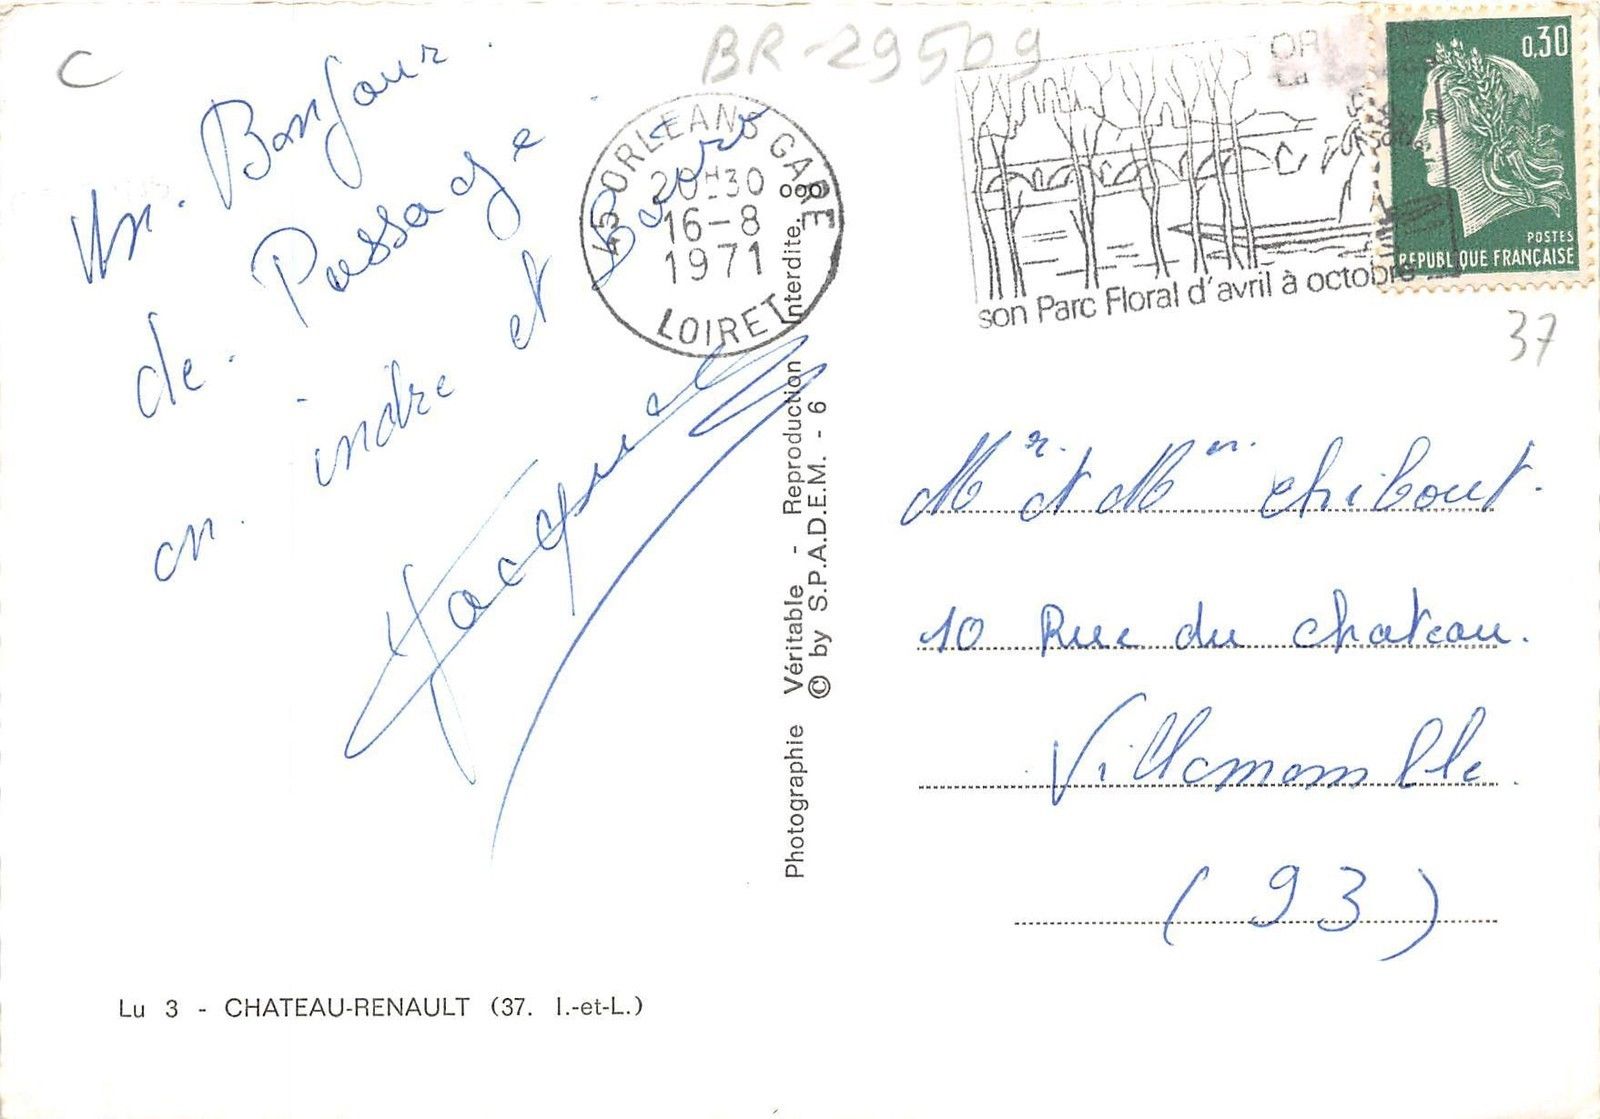 C
BR-29509
Un. Bonjour.
de. Passage.
en. indre et Loire
Jacqueline
45 ORLEANS GARE
20H30
16-8
1971
LOIRET
son Parc Floral d'avril à octobre
0,30
POSTES
REPUBLIQUE FRANÇAISE
37
Mr. et Mme. Chibout.
10 Rue du chateau.
Villemomble.
(93)
Photographie Véritable - Reproduction Interdite.
© by S.P.A.D.E.M. - 6
Lu 3 - CHATEAU-RENAULT (37. I.-et-L.)